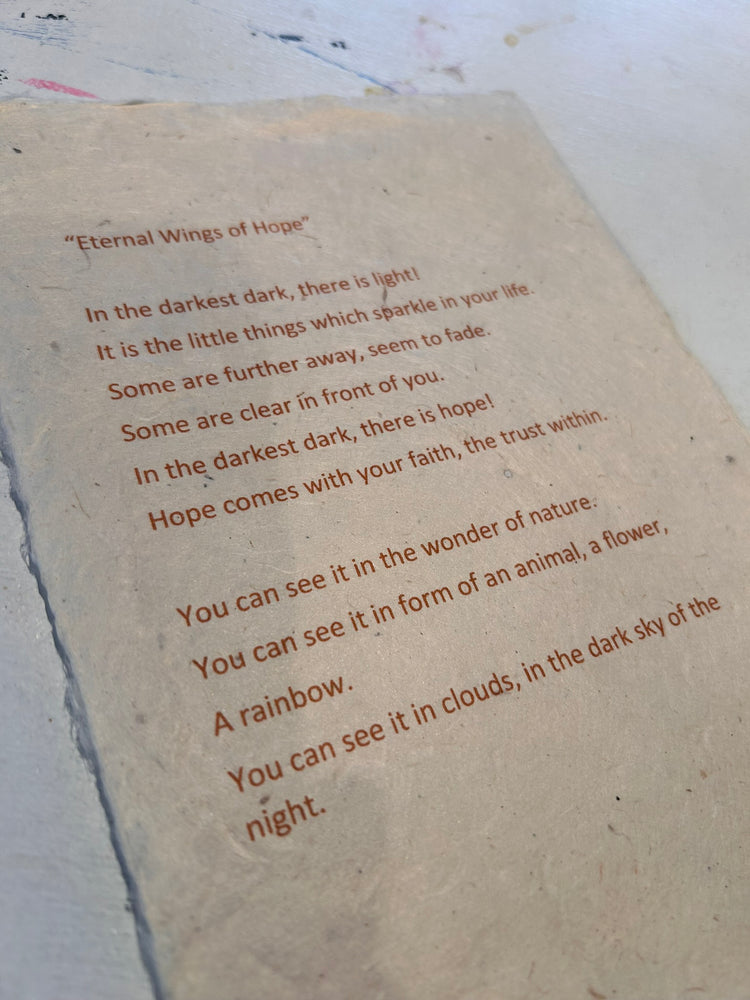 “Eternal Wings of Hope”
In the darkest dark, there is light!
It is the little things which sparkle in your life.
Some are further away, seem to fade.
Some are clear in front of you.
In the darkest dark, there is hope!
Hope comes with your faith, the trust within.
You can see it in the wonder of nature.
You can see it in form of an animal, a flower,
A rainbow.
You can see it in clouds, in the dark sky of the
night.